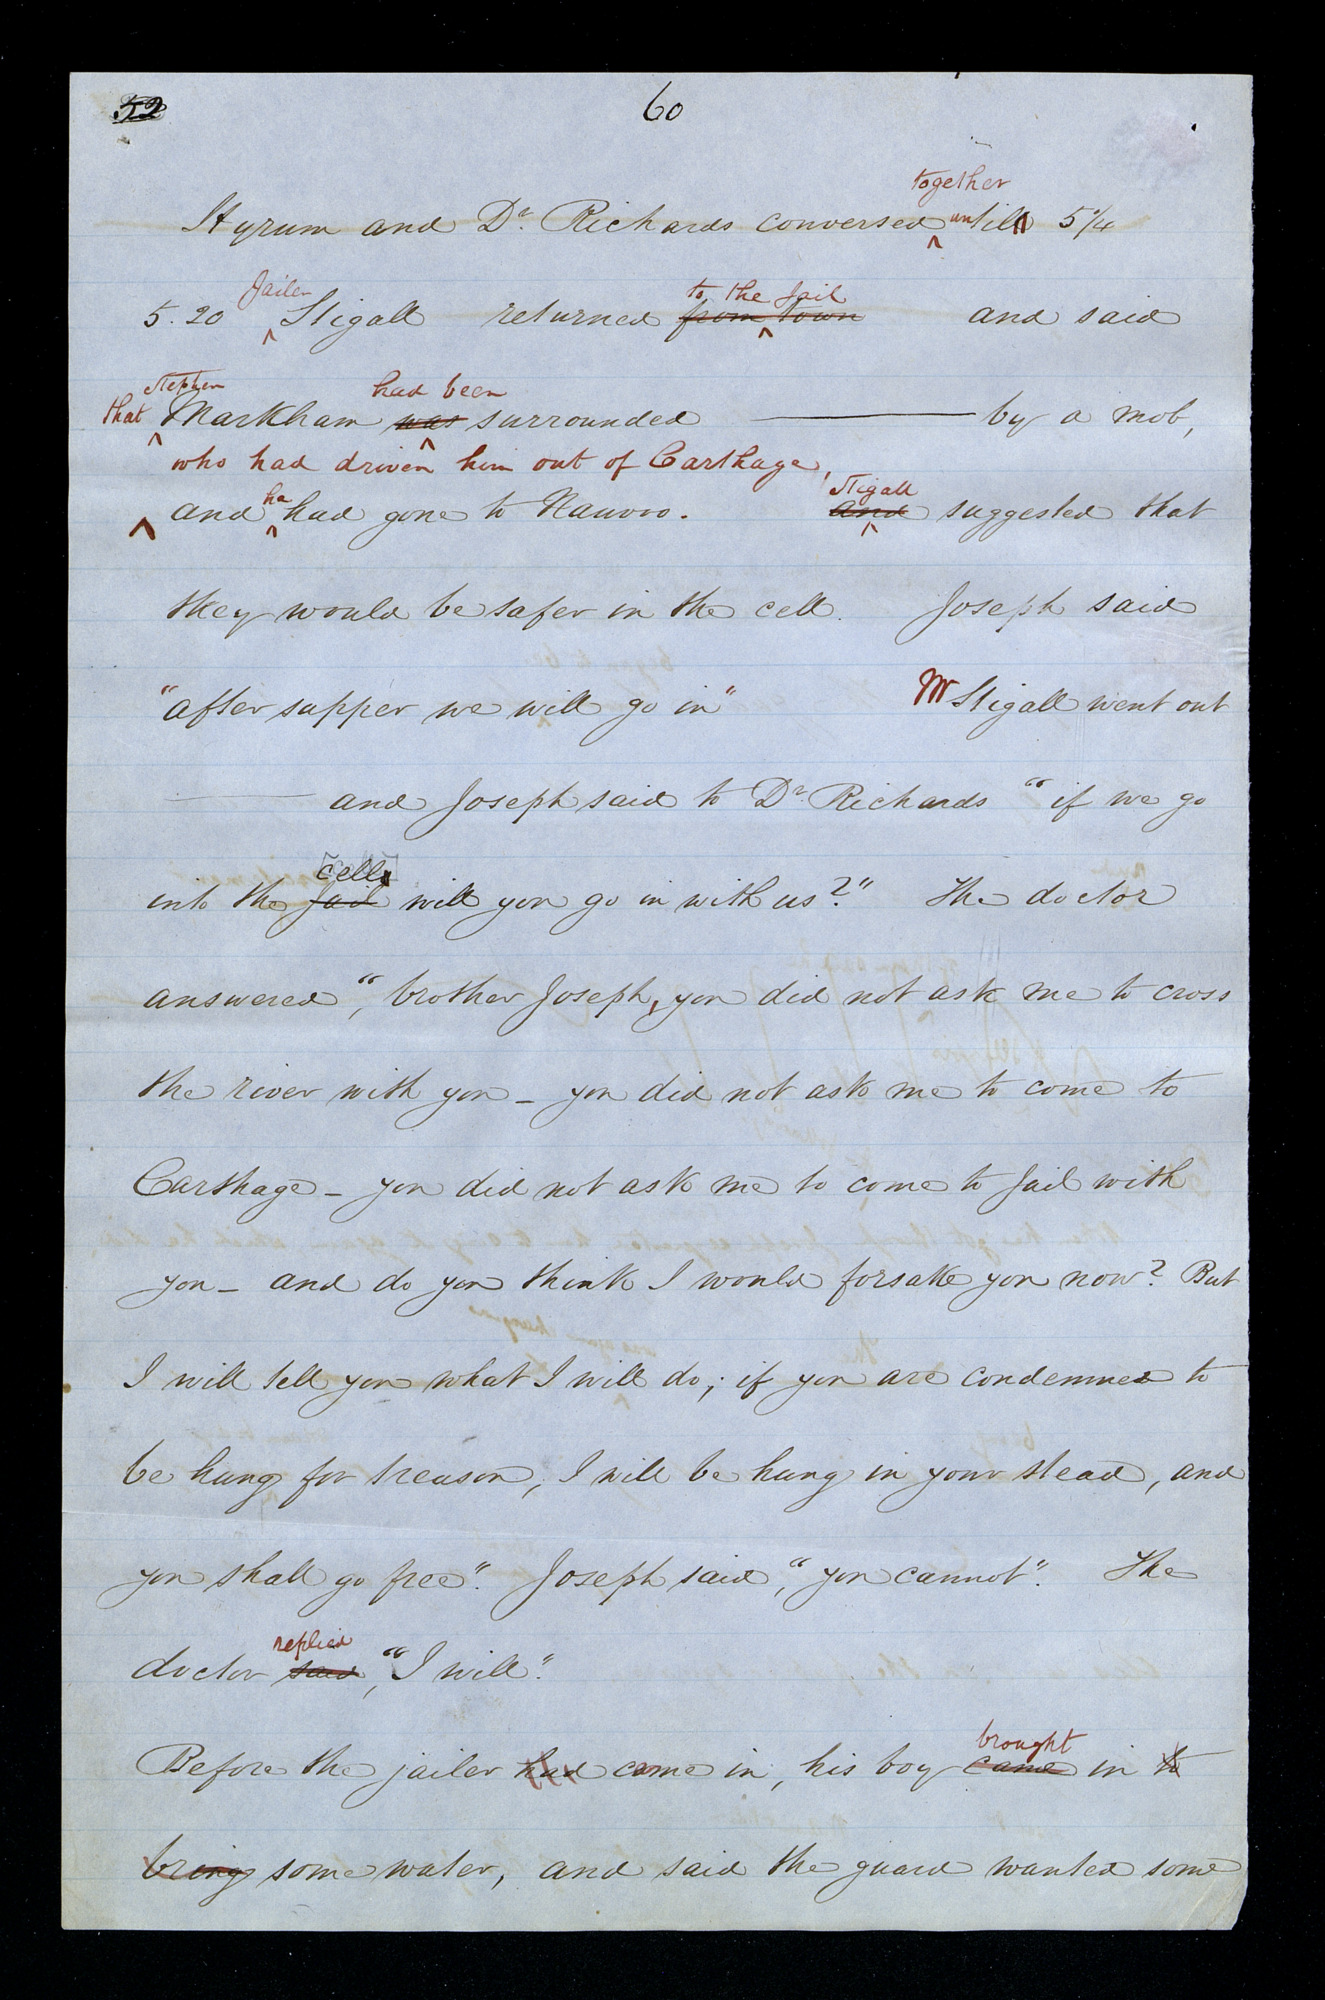 52 60
together
Hyrum and Dr. Richards conversed ^ untill 5 1/4
Jailer to the Jail
5.20 ^ Stigall returned from ^ town and said
Stephen had been
that ^ Markham was ^ surrounded ——— by a mob,
who had driven him out of Carthage,
he Stigall
^ and ^ had gone to Nauvoo. and ^ suggested that
they would be safer in the cell. Joseph said
"after supper we will go in" Mr Stigall went out
——— and Joseph said to Dr. Richards "if we go
[cell]
into the jail will you go in with us?" The doctor
answered, "brother Joseph, you did not ask me to cross
the river with you – you did not ask me to come to
Carthage – you did not ask me to come to Jail with
you – and do you think I would forsake you now? But
I will tell you what I will do; if you are condemned to
be hung for treason, I will be hung in your stead, and
you shall go free". Joseph said, "you cannot". The
replied
doctor said, "I will".
brought
Before the jailer had come in, his boy came in to
bring some water, and said the guard wanted some